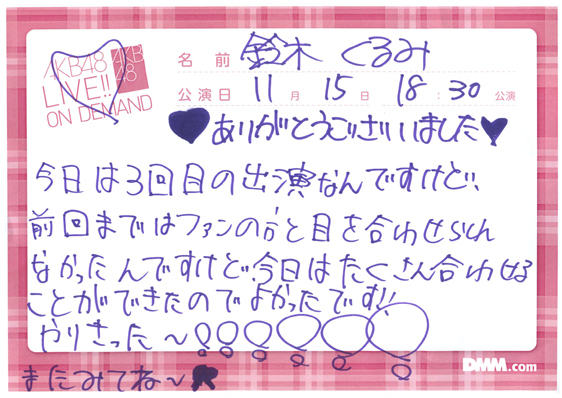 AKB48
LIVE!!
ON DEMAND
AKB
48
名前 鈴木 くるみ
公演日 11月 15日 18:30 公演
ありがとうございました
今日は3回目の出演なんですけど、
前回まではファンの方と目を合わせられ
なかったんですけど、今日はたくさん合わせる
ことができたのでよかったです!!
やりきった〜
またみてね〜
DMM.com